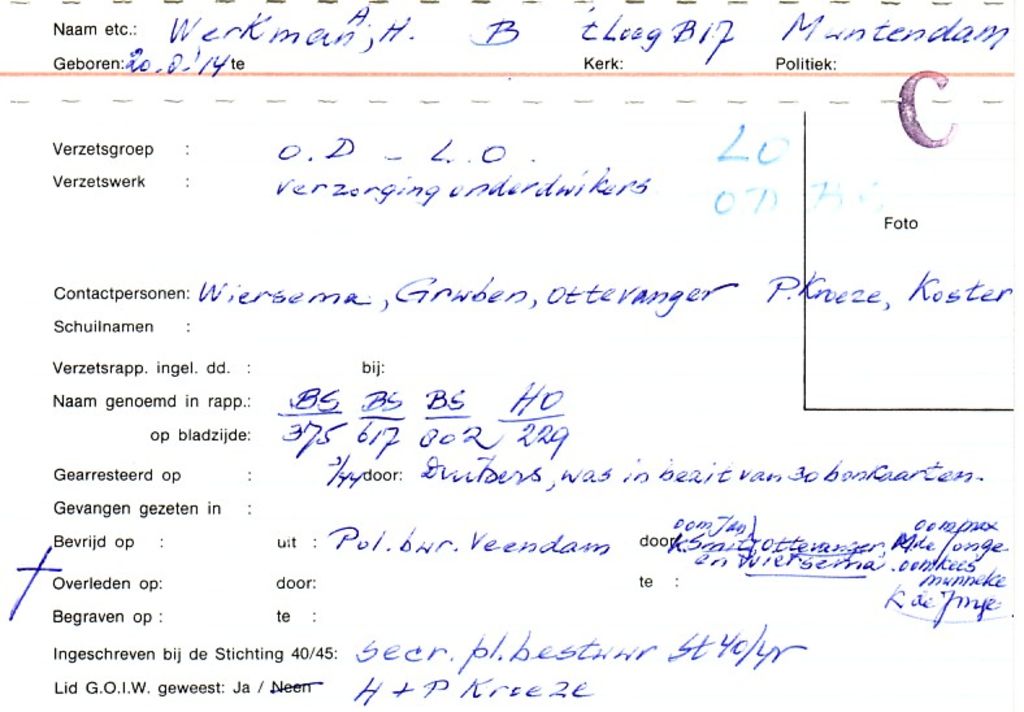 A
Naam etc.: Werkman, H. B 't Loeg B17 Muntendam
Geboren: 20.8.'14 te Kerk: Politiek:
C
Verzetsgroep : O.D - L.O. LO
Verzetswerk : verzorging onderduikers OD BS
Foto
Contactpersonen: Wiersema, Gruben, Ottevanger P. Kroeze, Koster
Schuilnamen :
Verzetsrapp. ingel. dd. : bij:
Naam genoemd in rapp.: BS BS BS HO
op bladzijde: 375 617 802 229
Gearresteerd op : /44 door: Duitsers, was in bezit van 30 bonkaarten.
Gevangen gezeten in :
oom Jan oom max
Bevrijd op : uit : Pol. bur. Veendam door K Smit, Ottevanger, M de Jonge
en Wiersema. oom kees
Overleden op: door: te : munneke
K de Jonge
Begraven op : te :
Ingeschreven bij de Stichting 40/45: secr. pl. bestuur St 40/45
Lid G.O.I.W. geweest: Ja / Neen H + P Kroeze